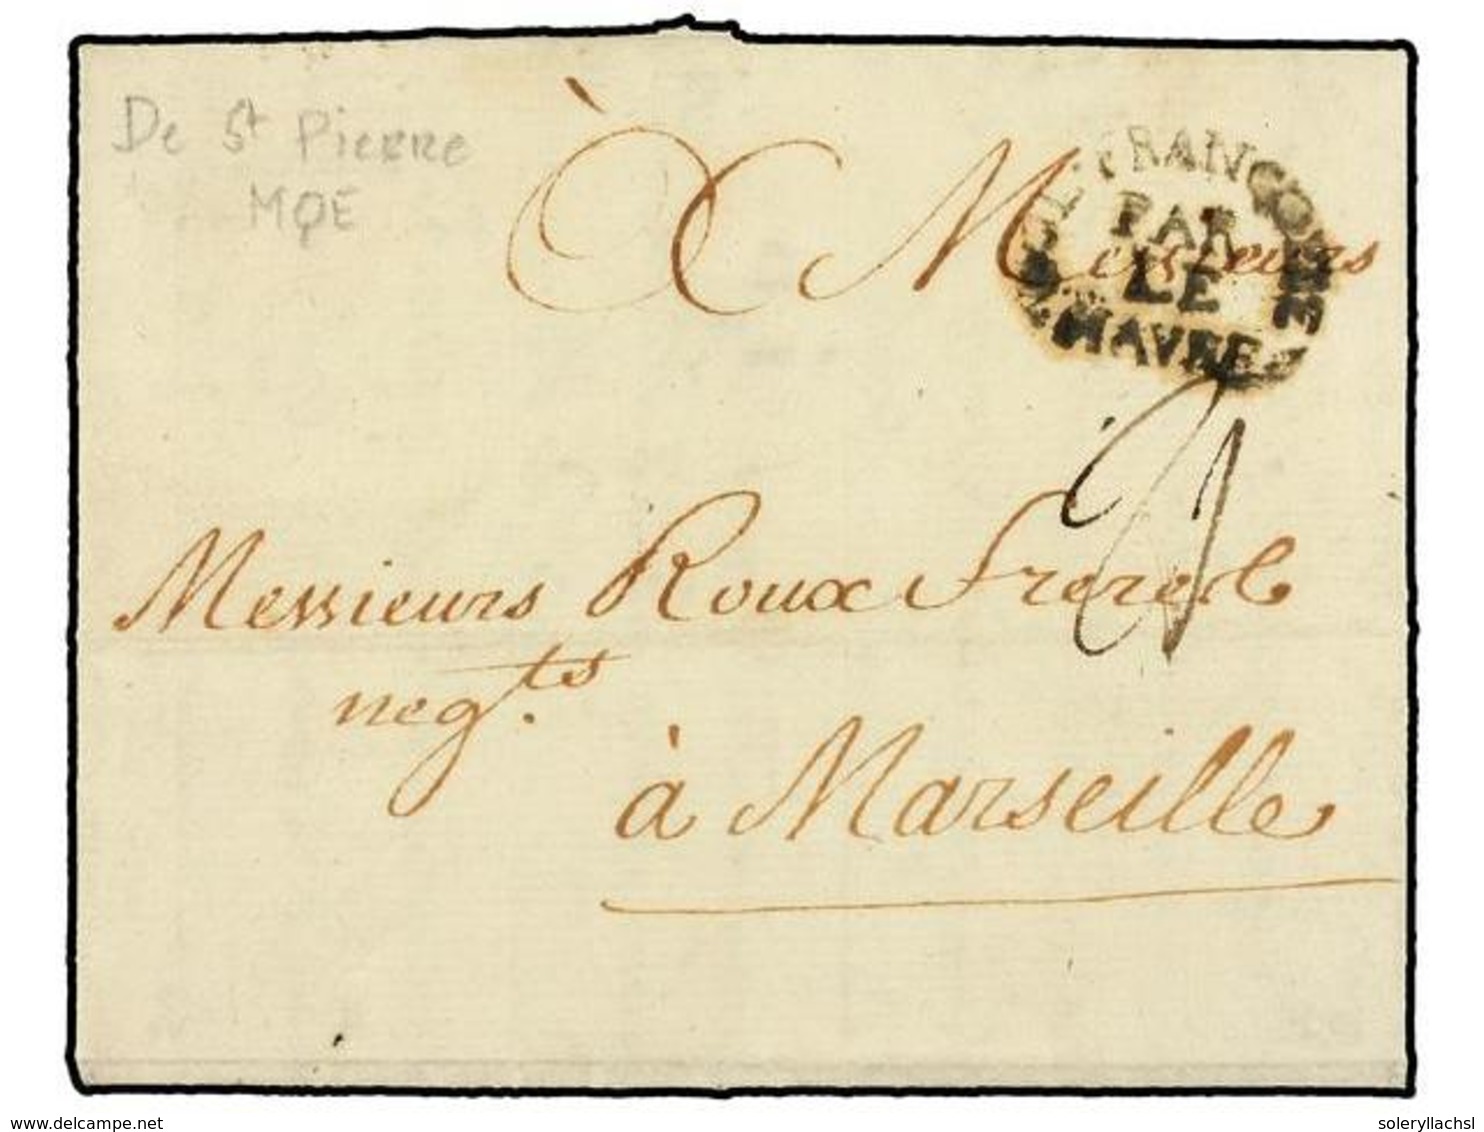 De St Pierre
MQE
À Messieurs
COL. FRANCOISE
PAR
LE
HAVRE
24
Messieurs Roux Freres
neg.ts
à Marseille
www.delcampe.net
soleryllachsl